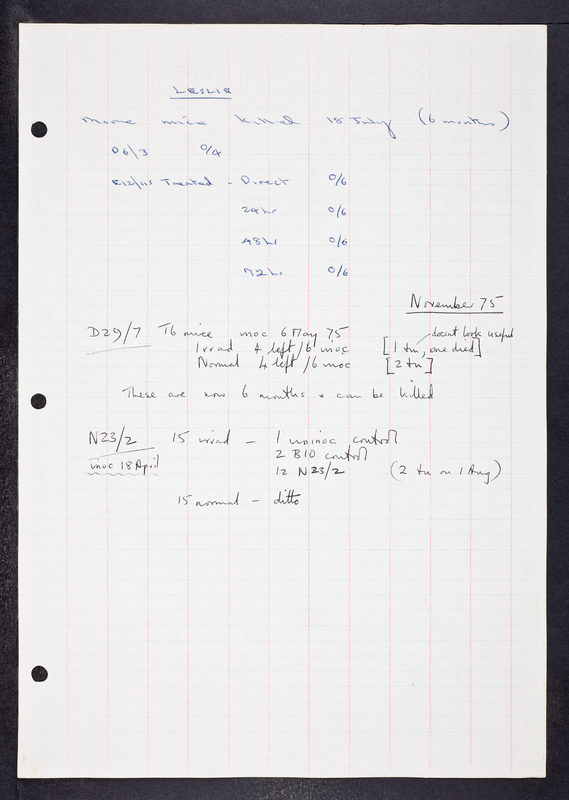 LESLIE
More mice killed 18 July (6 months)
D6/3 0/4
E12/115 Treated - Direct 0/6
24hr 0/6
48hr 0/6
72hr 0/6
November 75
doesnt look useful
D29/7 T6 mice inoc 6 May 75
Irrad 4 left/6 inoc [1 tu, one died]
Normal 4 left/6 inoc [2 tu]
These are now 6 months & can be killed
N23/2 15 irrad - 1 uninoc control
2 B10 control
inoc 18 April 12 N23/2 (2 tu on 1 Aug)
15 normal - ditto